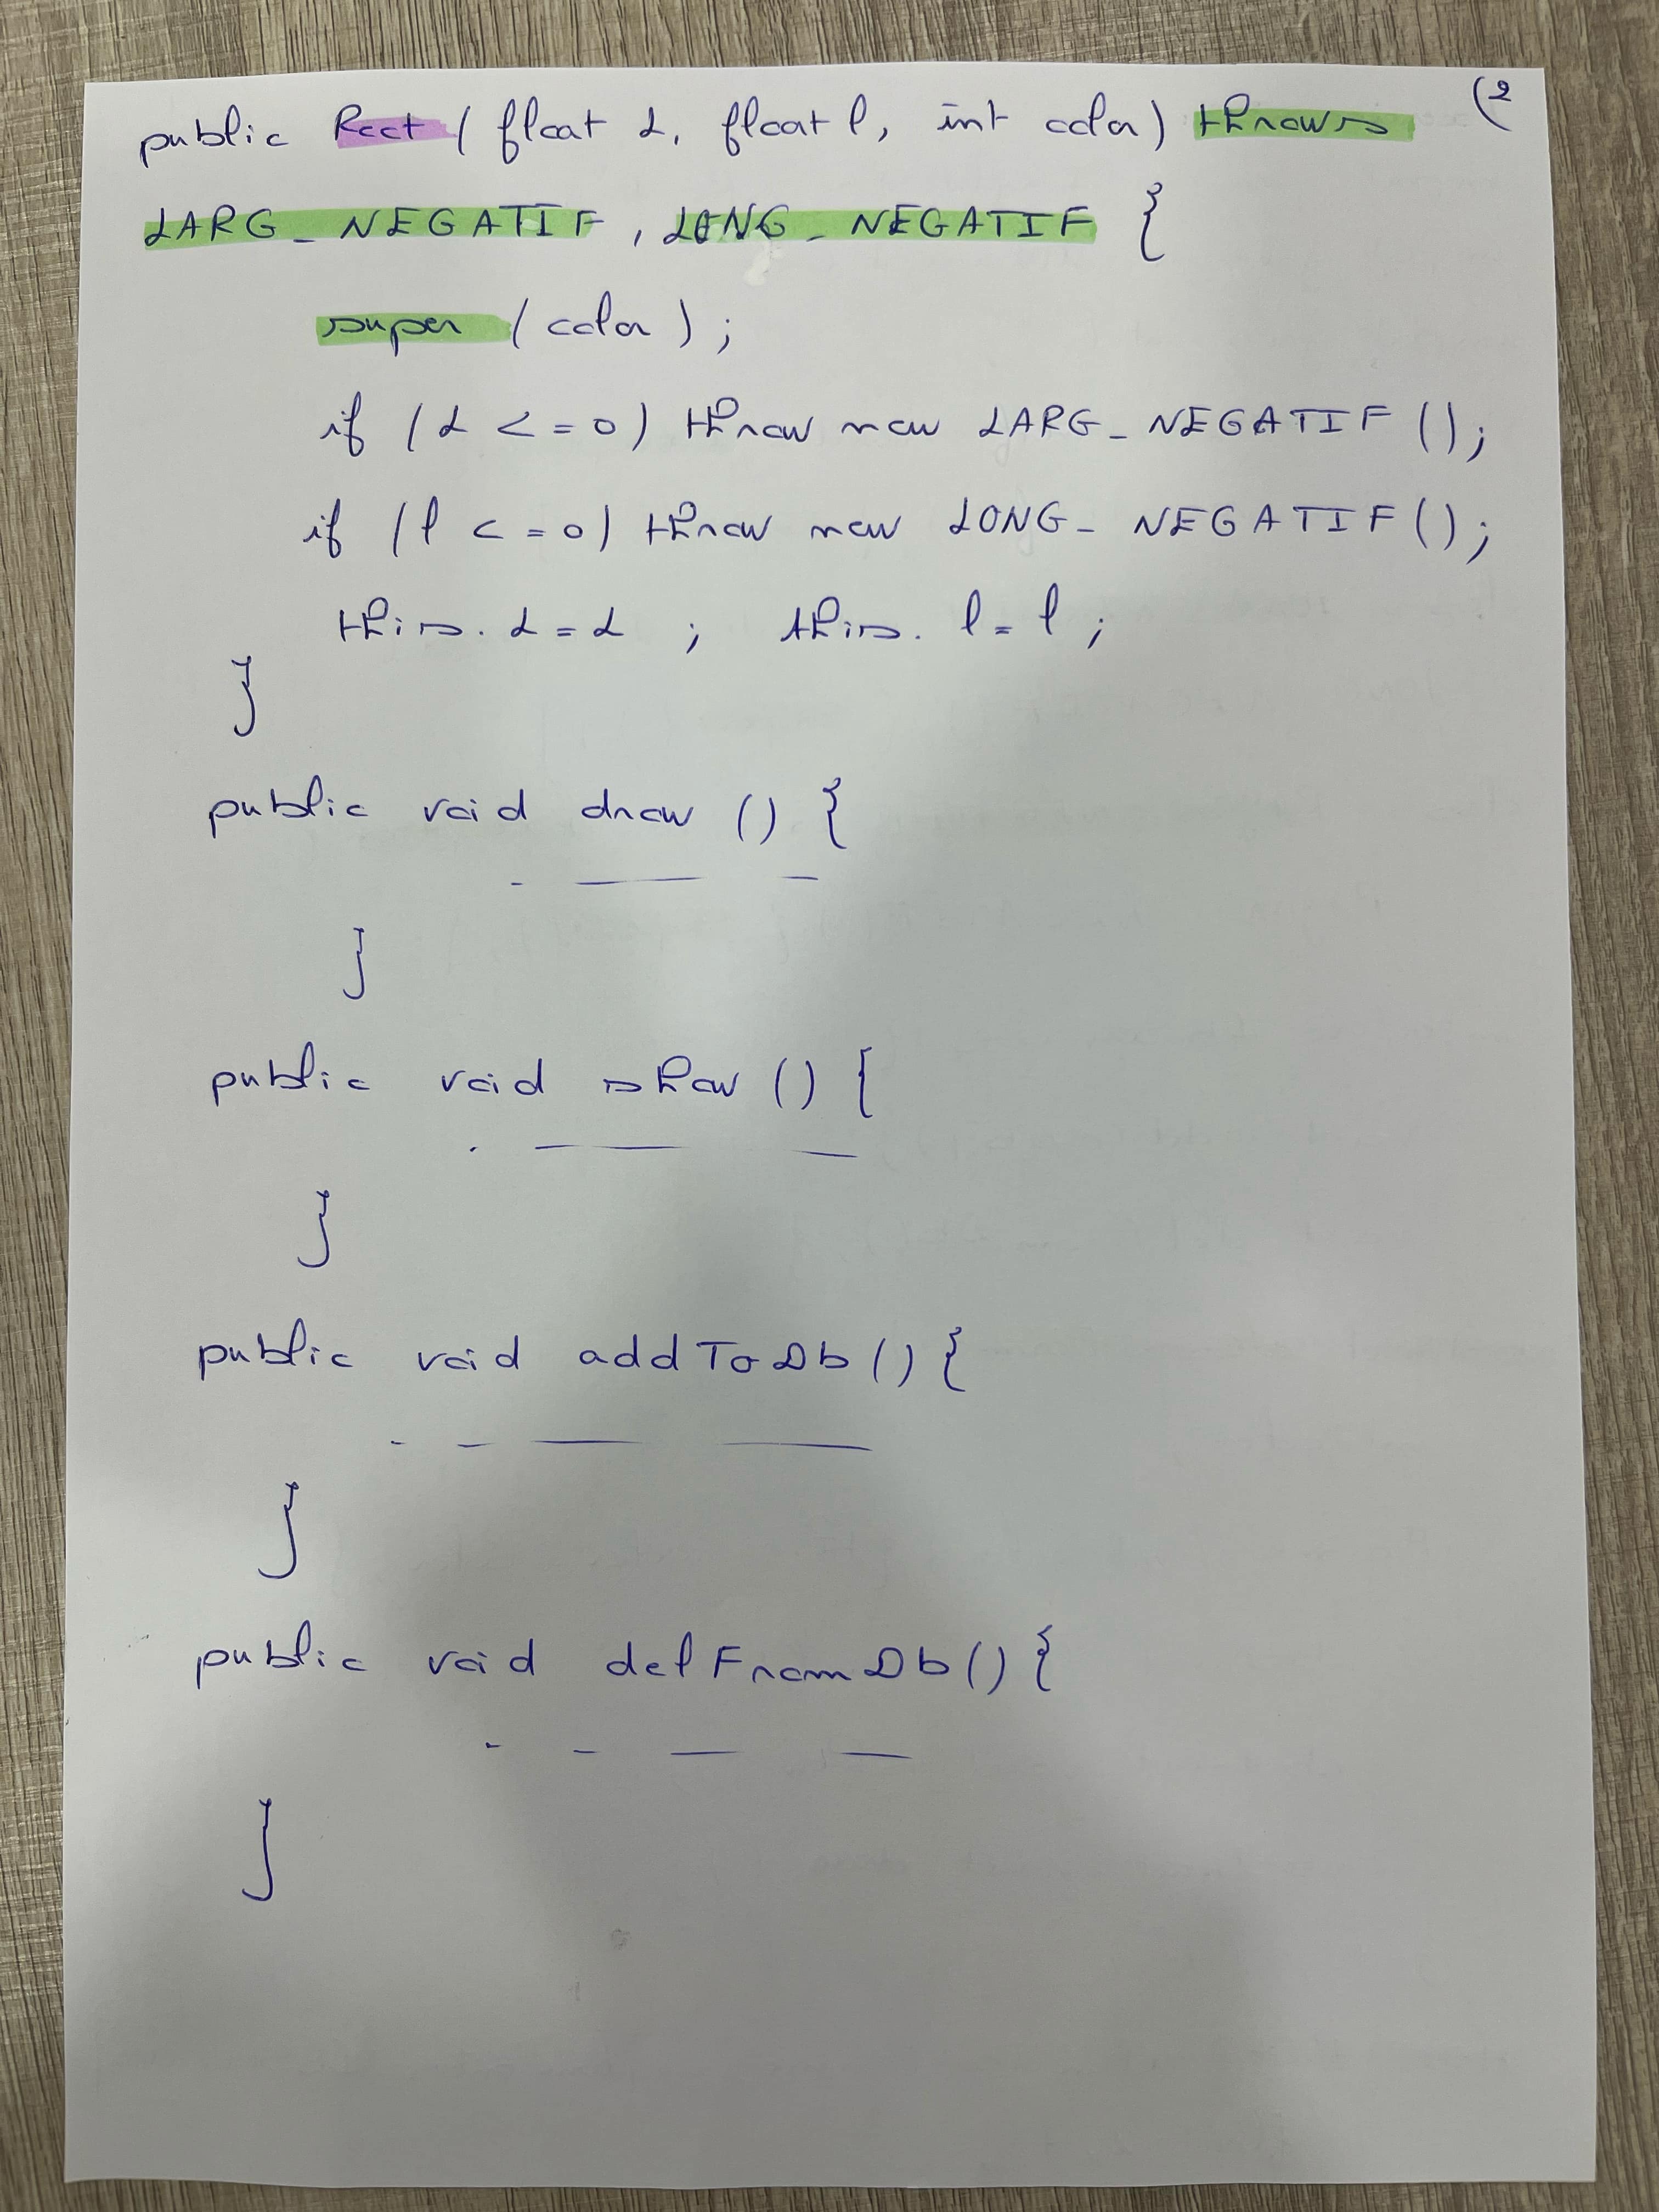 (2
public Rect (float L, float l, int color) throws
LARG_NEGATIF, LONG_NEGATIF {
super (color);
if (L <= 0) throw new LARG_NEGATIF ();
if (l <= 0) throw new LONG_NEGATIF ();
this. L = L ; this. l = l ;
}
public void draw () {
- — -
}
public void show () {
. — -
}
public void addToDb () {
- - — —
}
public void delFromDb () {
- - — —
}